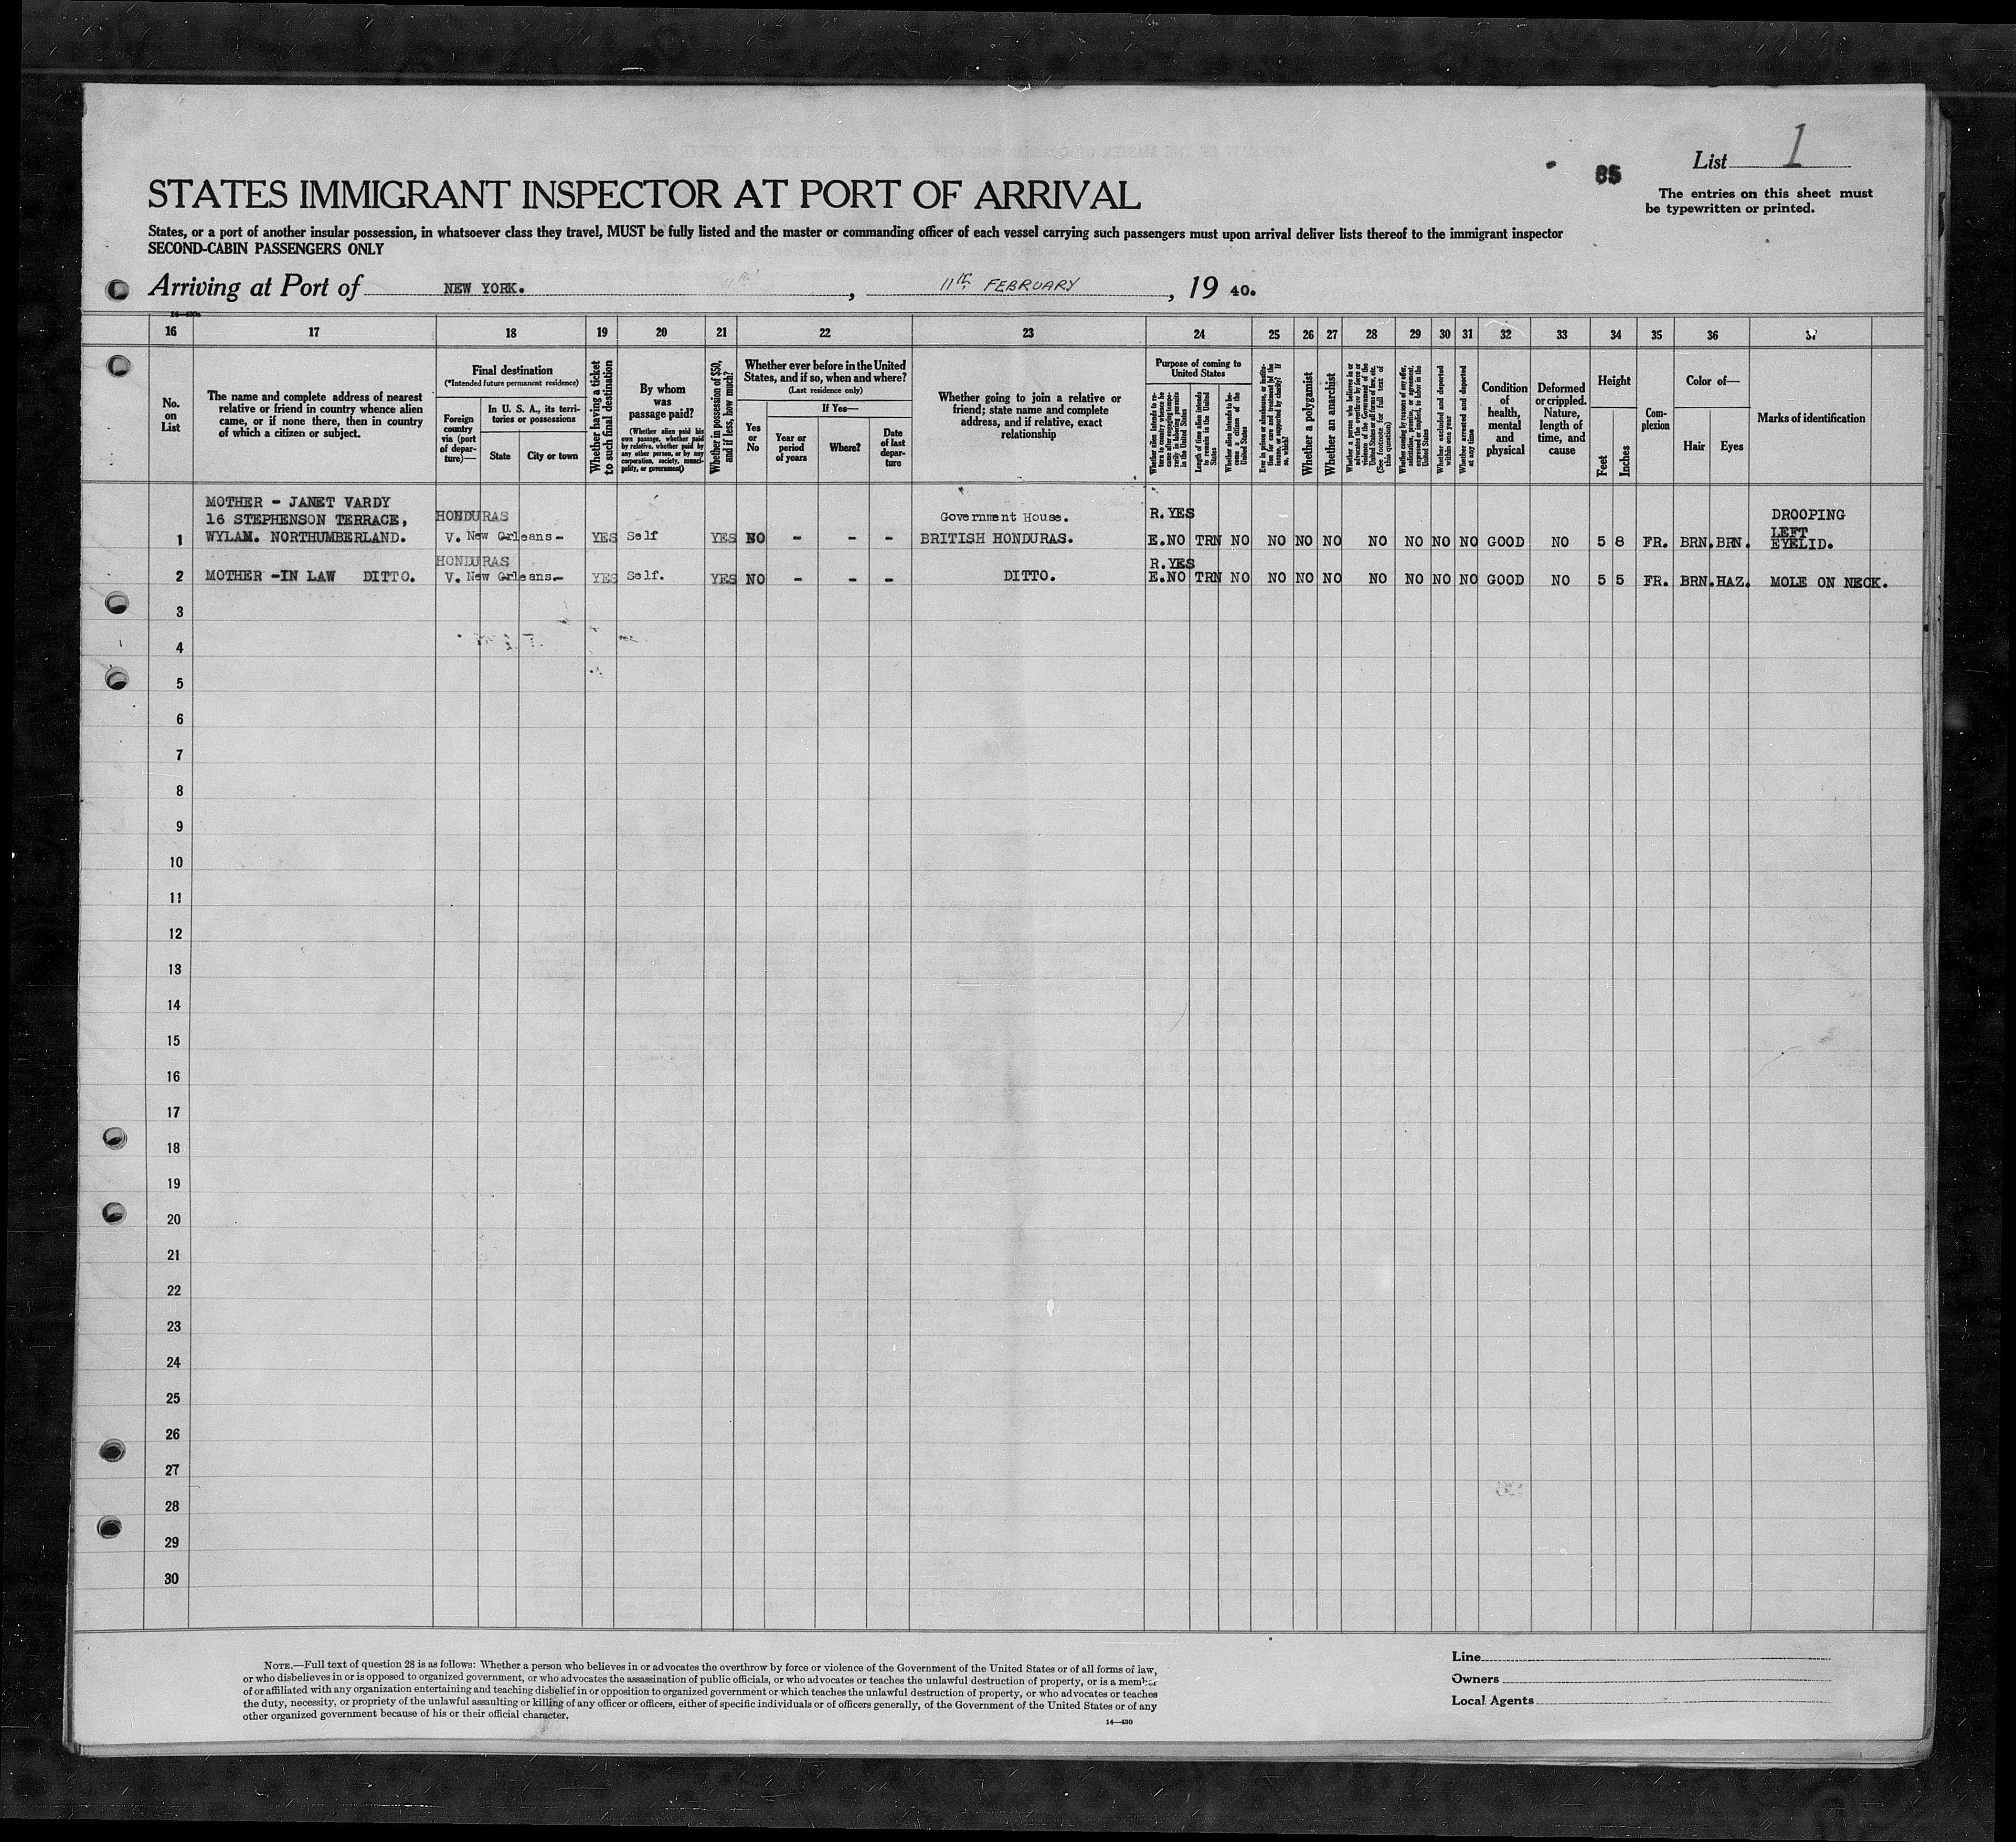 List 1
85
The entries on this sheet must
be typewritten or printed.
STATES IMMIGRANT INSPECTOR AT PORT OF ARRIVAL
States, or a port of another insular possession, in whatsoever class they travel, MUST be fully listed and the master or commanding officer of each vessel carrying such passengers must upon arrival deliver lists thereof to the immigrant inspector
SECOND-CABIN PASSENGERS ONLY
Arriving at Port of NEW YORK. , 11th FEBRUARY , 19 40.
16 17 18 19 20 21 22 23 24 25 26 27 28 29 30 31 32 33 34 35 36 37
No.
on
List
The name and complete address of nearest
relative or friend in country whence alien
came, or if none there, then in country
of which a citizen or subject.
Final destination
(*Intended future permanent residence)
Foreign
country
via (port
of depar-
ture)—
In U. S. A., its terri-
tories or possessions
State
City or town
Whether having a ticket
to such final destination
By whom
was
passage paid?
(Whether alien paid his
own passage, whether paid
by relative, whether paid by
any other person, or by any
corporation, society, munici-
pality, or government)
Whether in possession of $50,
and if less, how much?
Whether ever before in the United
States, and if so, when and where?
(Last residence only)
Yes
or
No
If Yes—
Year or
period
of years
Where?
Date
of last
depar-
ture
Whether going to join a relative or
friend; state name and complete
address, and if relative, exact
relationship
Purpose of coming to
United States
Whether alien intends to re-
turn to country whence he
came after engaging tempo-
rarily in laboring pursuits
in the United States
Length of time alien intends
to remain in the United
States
Whether alien intends to be-
come a citizen of the
United States
Ever in prison or almshouse, or institu-
tion for care and treatment of the
insane, or supported by charity? If
so, which?
Whether a polygamist
Whether an anarchist
Whether a person who believes in or
advocates the overthrow by force or
violence of the Government of the
United States or all forms of law, etc.
(See footnote for full text of
this question)
Whether coming by reason of any offer,
solicitation, promise, or agreement,
expressed or implied, to labor in the
United States
Whether excluded and deported
within one year
Whether arrested and deported
at any time
Condition
of
health,
mental
and
physical
Deformed
or crippled.
Nature,
length of
time, and
cause
Height
Feet
Inches
Com-
plexion
Color of—
Hair
Eyes
Marks of identification
MOTHER - JANET VARDY
16 STEPHENSON TERRACE, HONDURAS Government House. R.YES DROOPING
1 WYLAM. NORTHUMBERLAND. V. New Orleans- YES Self YES NO - - - BRITISH HONDURAS. E.NO TRN NO NO NO NO NO NO NO NO GOOD NO 5 8 FR. BRN. BRN. LEFT
EYELID.
HONDURAS R.YES
2 MOTHER -IN LAW DITTO. V. New Orleans.- YES Self. YES NO - - - DITTO. E.NO TRN NO NO NO NO NO NO NO NO GOOD NO 5 5 FR. BRN. HAZ. MOLE ON NECK.
3
4
5
6
7
8
9
10
11
12
13
14
15
16
17
18
19
20
21
22
23
24
25
26
27
28
29
30
NOTE.—Full text of question 28 is as follows: Whether a person who believes in or advocates the overthrow by force or violence of the Government of the United States or of all forms of law,
or who disbelieves in or is opposed to organized government, or who advocates the assassination of public officials, or who advocates or teaches the unlawful destruction of property, or is a member
of or affiliated with any organization entertaining and teaching disbelief in or opposition to organized government or which teaches the unlawful destruction of property, or who advocates or teaches
the duty, necessity, or propriety of the unlawful assaulting or killing of any officer or officers, either of specific individuals or of officers generally, of the Government of the United States or of any
other organized government because of his or their official character.
14—430
Line
Owners
Local Agents